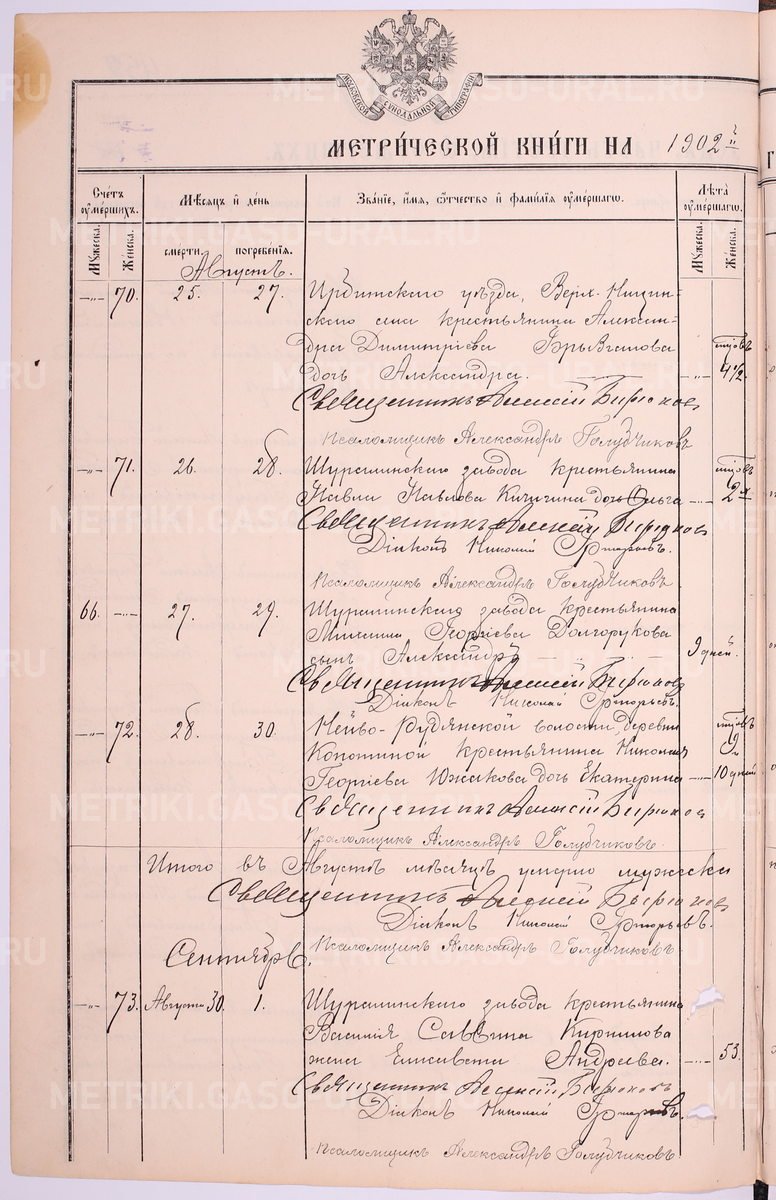 МОСКОВСКОЙ СѴНОДАЛЬНОЙ ТИПОГРАФІИ
МЕТРИ́ЧЕСКОЙ КНИ́ГИ НА 1902
Счетъ оумершихъ.
Мѣсяцъ и день
Званіе, имя, отчество и фамилія оумершагω.
Лѣта оумершагω.
Мужеска.
Женска.
смерти.
погребенія.
Мужеска.
Женска.
Августъ.
—"— 70. 25. 27. Ирбитскаго уѣзда, Верх-Ницин-
скаго села крестьянина Алексан-
дра Димитріева Брызгалова годовъ
дочь Александра. —"— 4½
Священникъ Алексій Бирюковъ
Псаломщикъ Александръ Голубчиковъ
—"— 71. 26. 28. Шуралинскаго завода крестьянина годовъ
Павла Павлова Кичигина дочь Ольга —"— 2
Священникъ Алексій Бирюковъ
Діаконъ Николай Григорьевъ.
Псаломщикъ Александръ Голубчиковъ
66. —"— 27. 29. Шуралинскаго завода крестьянина
Георгіева Долгорукова
сынъ Александръ 9 дней.
Священникъ Алексій Бирюковъ
Діаконъ Николай Григорьевъ.
—"— 72. 28. 30. Нейво-Рудянской волости, деревни
Копотиной крестьянина Николая
Георгіева Южакова дочь Екатерина —"— 10 дней
Священникъ Алексій Бирюковъ
Псаломщикъ Александръ Голубчиковъ.
Итого въ Августѣ мѣсяцѣ умерло мужеска
Священникъ Алексій Бирюковъ
Діаконъ Николай Григорьевъ.
Псаломщикъ Александръ Голубчиковъ.
Сентябрь.
—"— 73. Августа 30. 1. Шуралинскаго завода крестьянина
Василія Саввина Кирилова
жена Елисавета Андреева. —"— 53.
Священникъ Алексій Бирюковъ
Діаконъ Николай Григорьевъ.
Псаломщикъ Александръ Голубчиковъ
METRIKI.GASO-URAL.RU